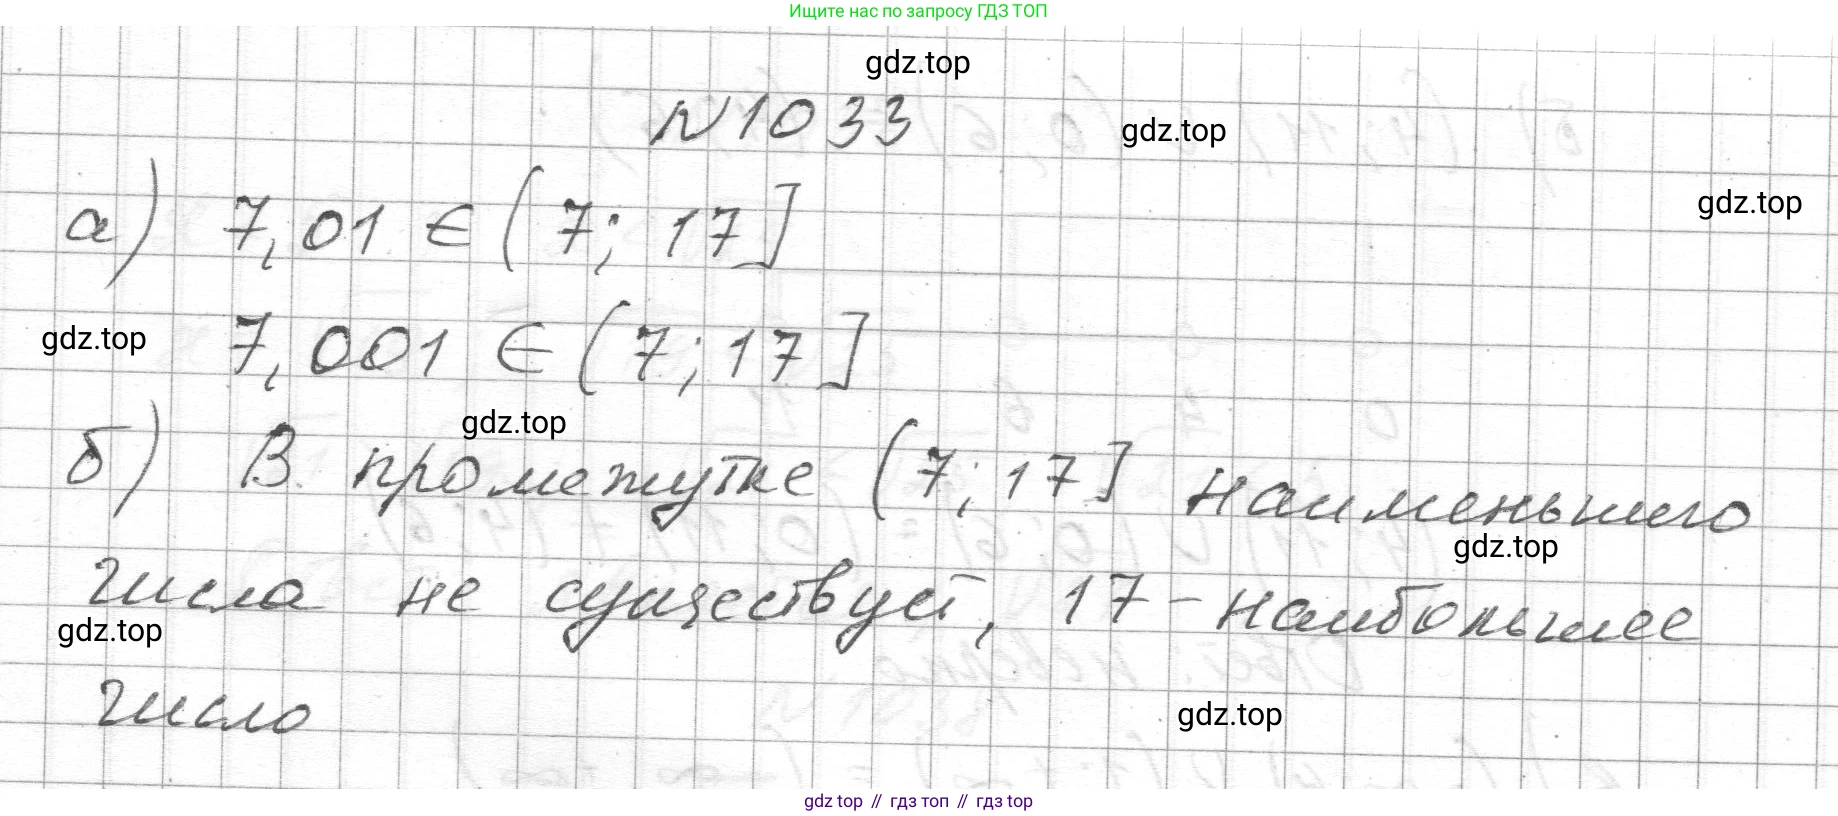 Ищите нас по запросу ГДЗ ТОП
gdz.top
N1033
gdz.top
gdz.top
а) 7,01 ∈ (7; 17]
gdz.top
7,001 ∈ (7; 17]
gdz.top
б) В промежутке (7; 17] наименьшего
gdz.top
числа не существует, 17 - наибольшее
gdz.top
число
gdz.top
gdz top // гдз топ // гдз top